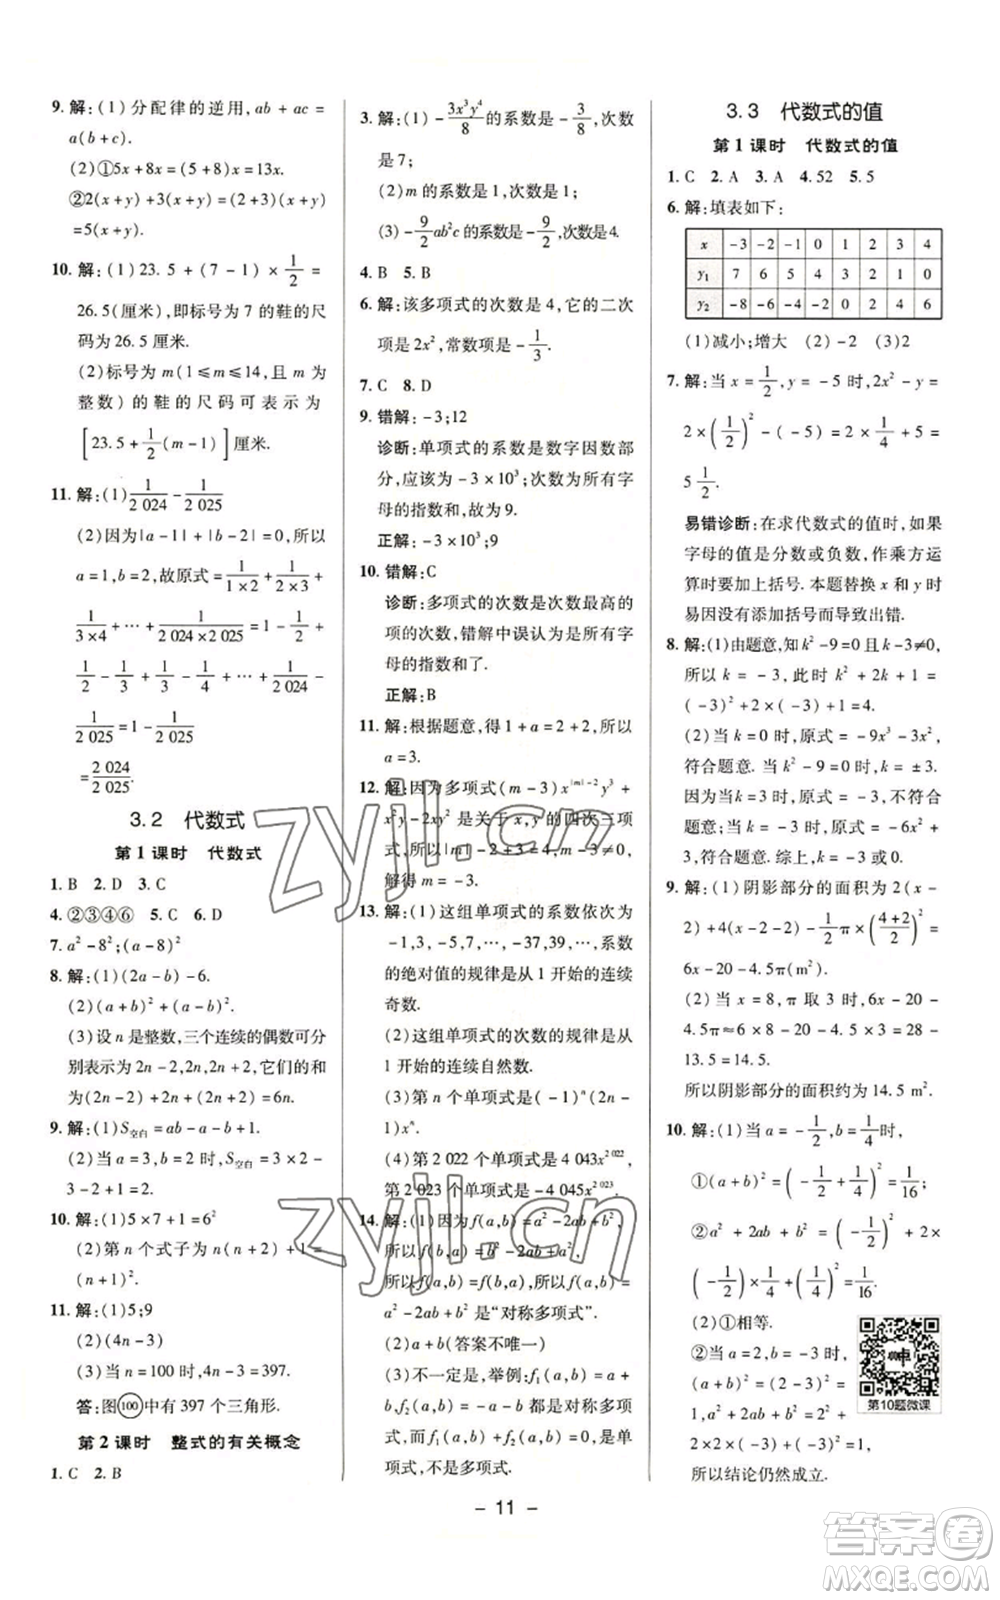 9. 解:(1)分配律的逆用,ab + ac =
a(b + c).
(2)①5x + 8x = (5 + 8)x = 13x.
②2(x + y) + 3(x + y) = (2 + 3)(x + y)
= 5(x + y).
10. 解:(1)23.5 + (7 - 1) × 1/2 =
26.5(厘米),即标号为 7 的鞋的尺
码为 26.5 厘米.
(2)标号为 m(1 ≤ m ≤ 14,且 m 为
整数)的鞋的尺码可表示为
[23.5 + 1/2(m - 1)]厘米.
11. 解:(1)1/2 024 - 1/2 025
(2)因为|a - 1| + |ab - 2| = 0,所以
a = 1,b = 2,故原式 = 1/(1×2) + 1/(2×3) +
1/(3×4) + … + 1/(2 024×2 025) = 1 -
1/2 + 1/2 - 1/3 + 1/3 - 1/4 + … + 1/2 024 -
1/2 025 = 1 - 1/2 025
= 2 024/2 025.
3.2 代数式
第 1 课时 代数式
1. B 2. D 3. C
4. ②③④⑥ 5. C 6. D
7. a² - 8²;(a - 8)²
8. 解:(1)(2a - b) - 6.
(2)(a + b)² + (a - b)².
(3)设 n 是整数,三个连续的偶数可分
别表示为 2n - 2,2n,2n + 2,它们的和
为(2n - 2) + 2n + (2n + 2) = 6n.
9. 解:(1)S空白 = ab - a - b + 1.
(2)当 a = 3,b = 2 时,S空白 = 3 × 2 -
3 - 2 + 1 = 2.
10. 解:(1)5 × 7 + 1 = 6²
(2)第 n 个式子为 n(n + 2) + 1 =
(n + 1)².
11. 解:(1)5;9
(2)(4n - 3)
(3)当 n = 100 时,4n - 3 = 397.
答:图(100)中有 397 个三角形.
第 2 课时 整式的有关概念
1. C 2. B
3. 解:(1) -3x³y⁴/8 的系数是 -3/8,次数
是 7;
(2)m 的系数是 1,次数是 1;
(3) -9/2ab²c 的系数是 -9/2,次数是 4.
4. B 5. B
6. 解:该多项式的次数是 4,它的二次
项是 2x²,常数项是 -1/3.
7. C 8. D
9. 错解: -3;12
诊断:单项式的系数是数字因数部
分,应该为 -3 × 10³;次数为所有字
母的指数和,故为 9.
正解: -3 × 10³;9
10. 错解:C
诊断:多项式的次数是次数最高的
项的次数,错解中误认为是所有字
母的指数和了.
正解:B
11. 解:根据题意,得 1 + a = 2 + 2,所以
a = 3.
12. 解:因为多项式(m - 3)x^(|m| - 2)y³ +
x²y - 2xy² 是关于 x,y 的四次三项
式,所以|m| - 2 + 3 = 4,m - 3 ≠ 0,
解得 m = -3.
13. 解:(1)这组单项式的系数依次为
-1,3, -5,7,…, -37,39,…,系数
的绝对值的规律是从 1 开始的连续
奇数.
(2)这组单项式的次数的规律是从
1 开始的连续自然数.
(3)第 n 个单项式是( -1)ⁿ(2n -
1)xⁿ.
(4)第 2 022 个单项式是 4 043x^2 022,
第 2 023 个单项式是 -4 045x^2 023.
14. 解:(1)因为 f(a,b) = a² - 2ab + b²,
所以 f(b,a) = b² - 2ab + a²,
所以 f(a,b) = f(b,a),所以 f(a,b) =
a² - 2ab + b² 是“对称多项式”.
(2)a + b(答案不唯一)
(3)不一定是,举例:f₁(a,b) = a +
b,f₂(a,b) = -a - b 都是对称多项
式,而 f₁(a,b) + f₂(a,b) = 0,是单
项式,不是多项式.
3.3 代数式的值
第 1 课时 代数式的值
1. C 2. A 3. A 4. 52 5. 5
6. 解:填表如下:
x -3 -2 -1 0 1 2 3 4
y₁ 7 6 5 4 3 2 1 0
y₂ -8 -6 -4 -2 0 2 4 6
(1)减小;增大 (2) -2 (3)2
7. 解:当 x = 1/2,y = -5 时,2x² - y =
2 × (1/2)² - ( -5) = 2 × 1/4 + 5 =
5 1/2.
易错诊断:在求代数式的值时,如果
字母的值是分数或负数,作乘方运
算时要加上括号. 本题替换 x 和 y 时
易因没有添加括号而导致出错.
8. 解:(1)由题意,知 k² - 9 = 0 且 k - 3 ≠ 0,
所以 k = -3,此时 k² + 2k + 1 =
( -3)² + 2 × ( -3) + 1 = 4.
(2)当 k = 0 时,原式 = -9x³ - 3x,
符合题意;当 k² - 9 = 0 时,k = ±3.
因为当 k = 3 时,原式 = -6x + 9,不
符合题意;当 k = -3 时,原式 = -6x +
3,符合题意. 综上,k 为 -3 或 0.
9. 解:(1)阴影部分的面积为 2(x -
2) + 4(x - 2 - 2) - 1/2π × ((4 + 2)/2)² =
6x - 20 - 4.5π(m²).
(2)当 x = 8,π 取 3 时,6x - 20 -
4.5π ≈ 6 × 8 - 20 - 4.5 × 3 = 28 -
13.5 = 14.5.
所以阴影部分的面积约为 14.5 m².
10. 解:(1)当 a = -1/2,b = 1/4 时,
①(a + b)² = ( -1/2 + 1/4)² = 1/16;
②a² + 2ab + b² = ( -1/2)² + 2 ×
( -1/2) × 1/4 + (1/4)² = 1/16.
(2)①相等.
②当 a = 2,b = -3 时,
(a + b)² = (2 - 3)² = 1,
a² + 2ab + b² = 2² +
2 × 2 × ( -3) + ( -3)² = 1,
所以结论仍然成立.
第10题微课
- 11 -
zyjl.cn
zyjl.cn
答案卷
MXQE.COM